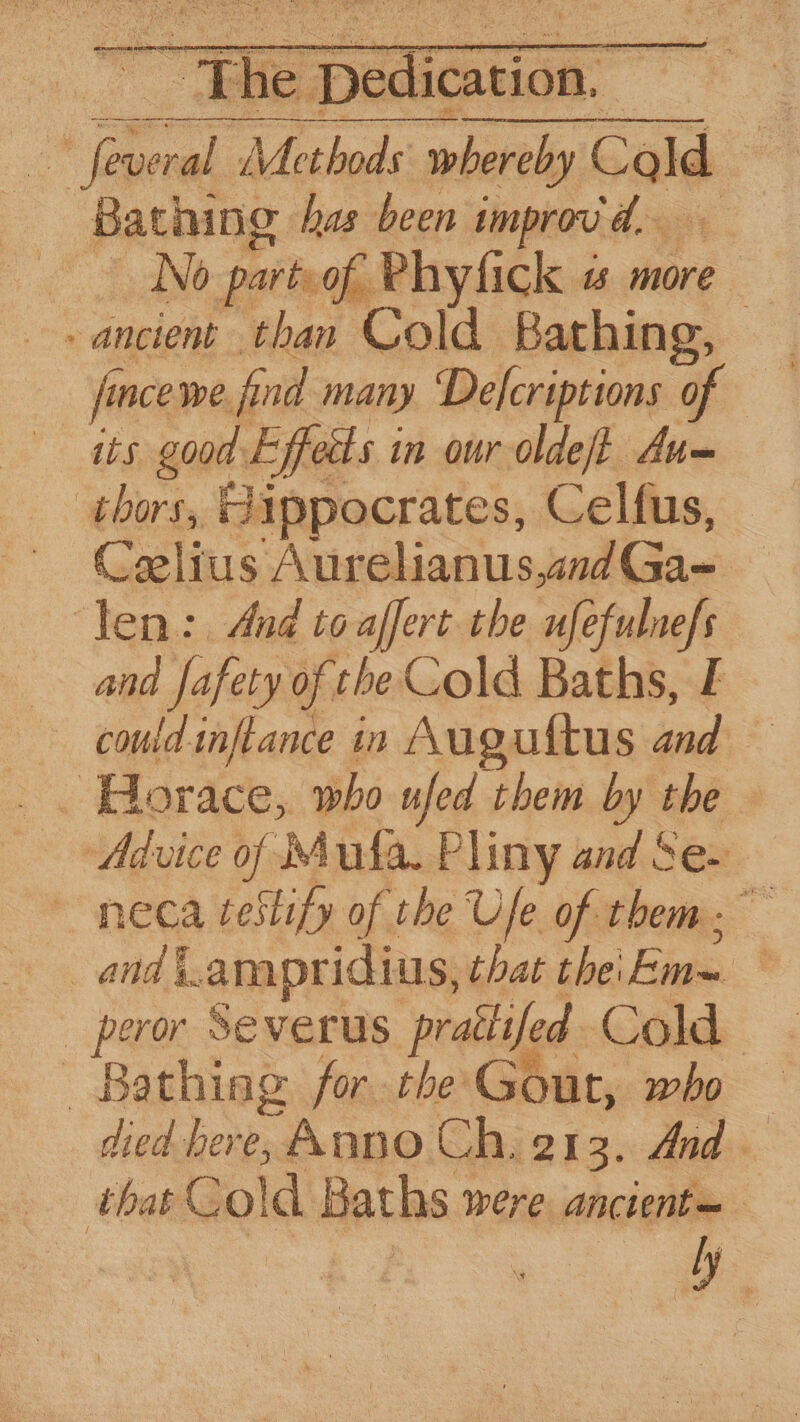 The Dedication.
ſeveral Methods whereby Cold
Bathing has been improv'd.
No part of Phyſick is more
ancient than Cold Bathing,
ſince we find many Deſcriptions of
its good Effects in our oldeſt Au-
thors, Hippocrates, Celſus,
Cælius Aurelianus, and Ga-
len: And to aſſert the uſefulneſs
and ſafety of the Cold Baths, I
could inſtance in Auguſtus and
Horace, who uſed them by the
Advice of Muſa. Pliny and Se-
neca teſtify of the Uſe of them;
and Lampridius, that the Em-
peror Severus practiſed Cold
Bathing for the Gout, who
died here, Anno Ch. 213. And
that Cold Baths were ancient-
ly